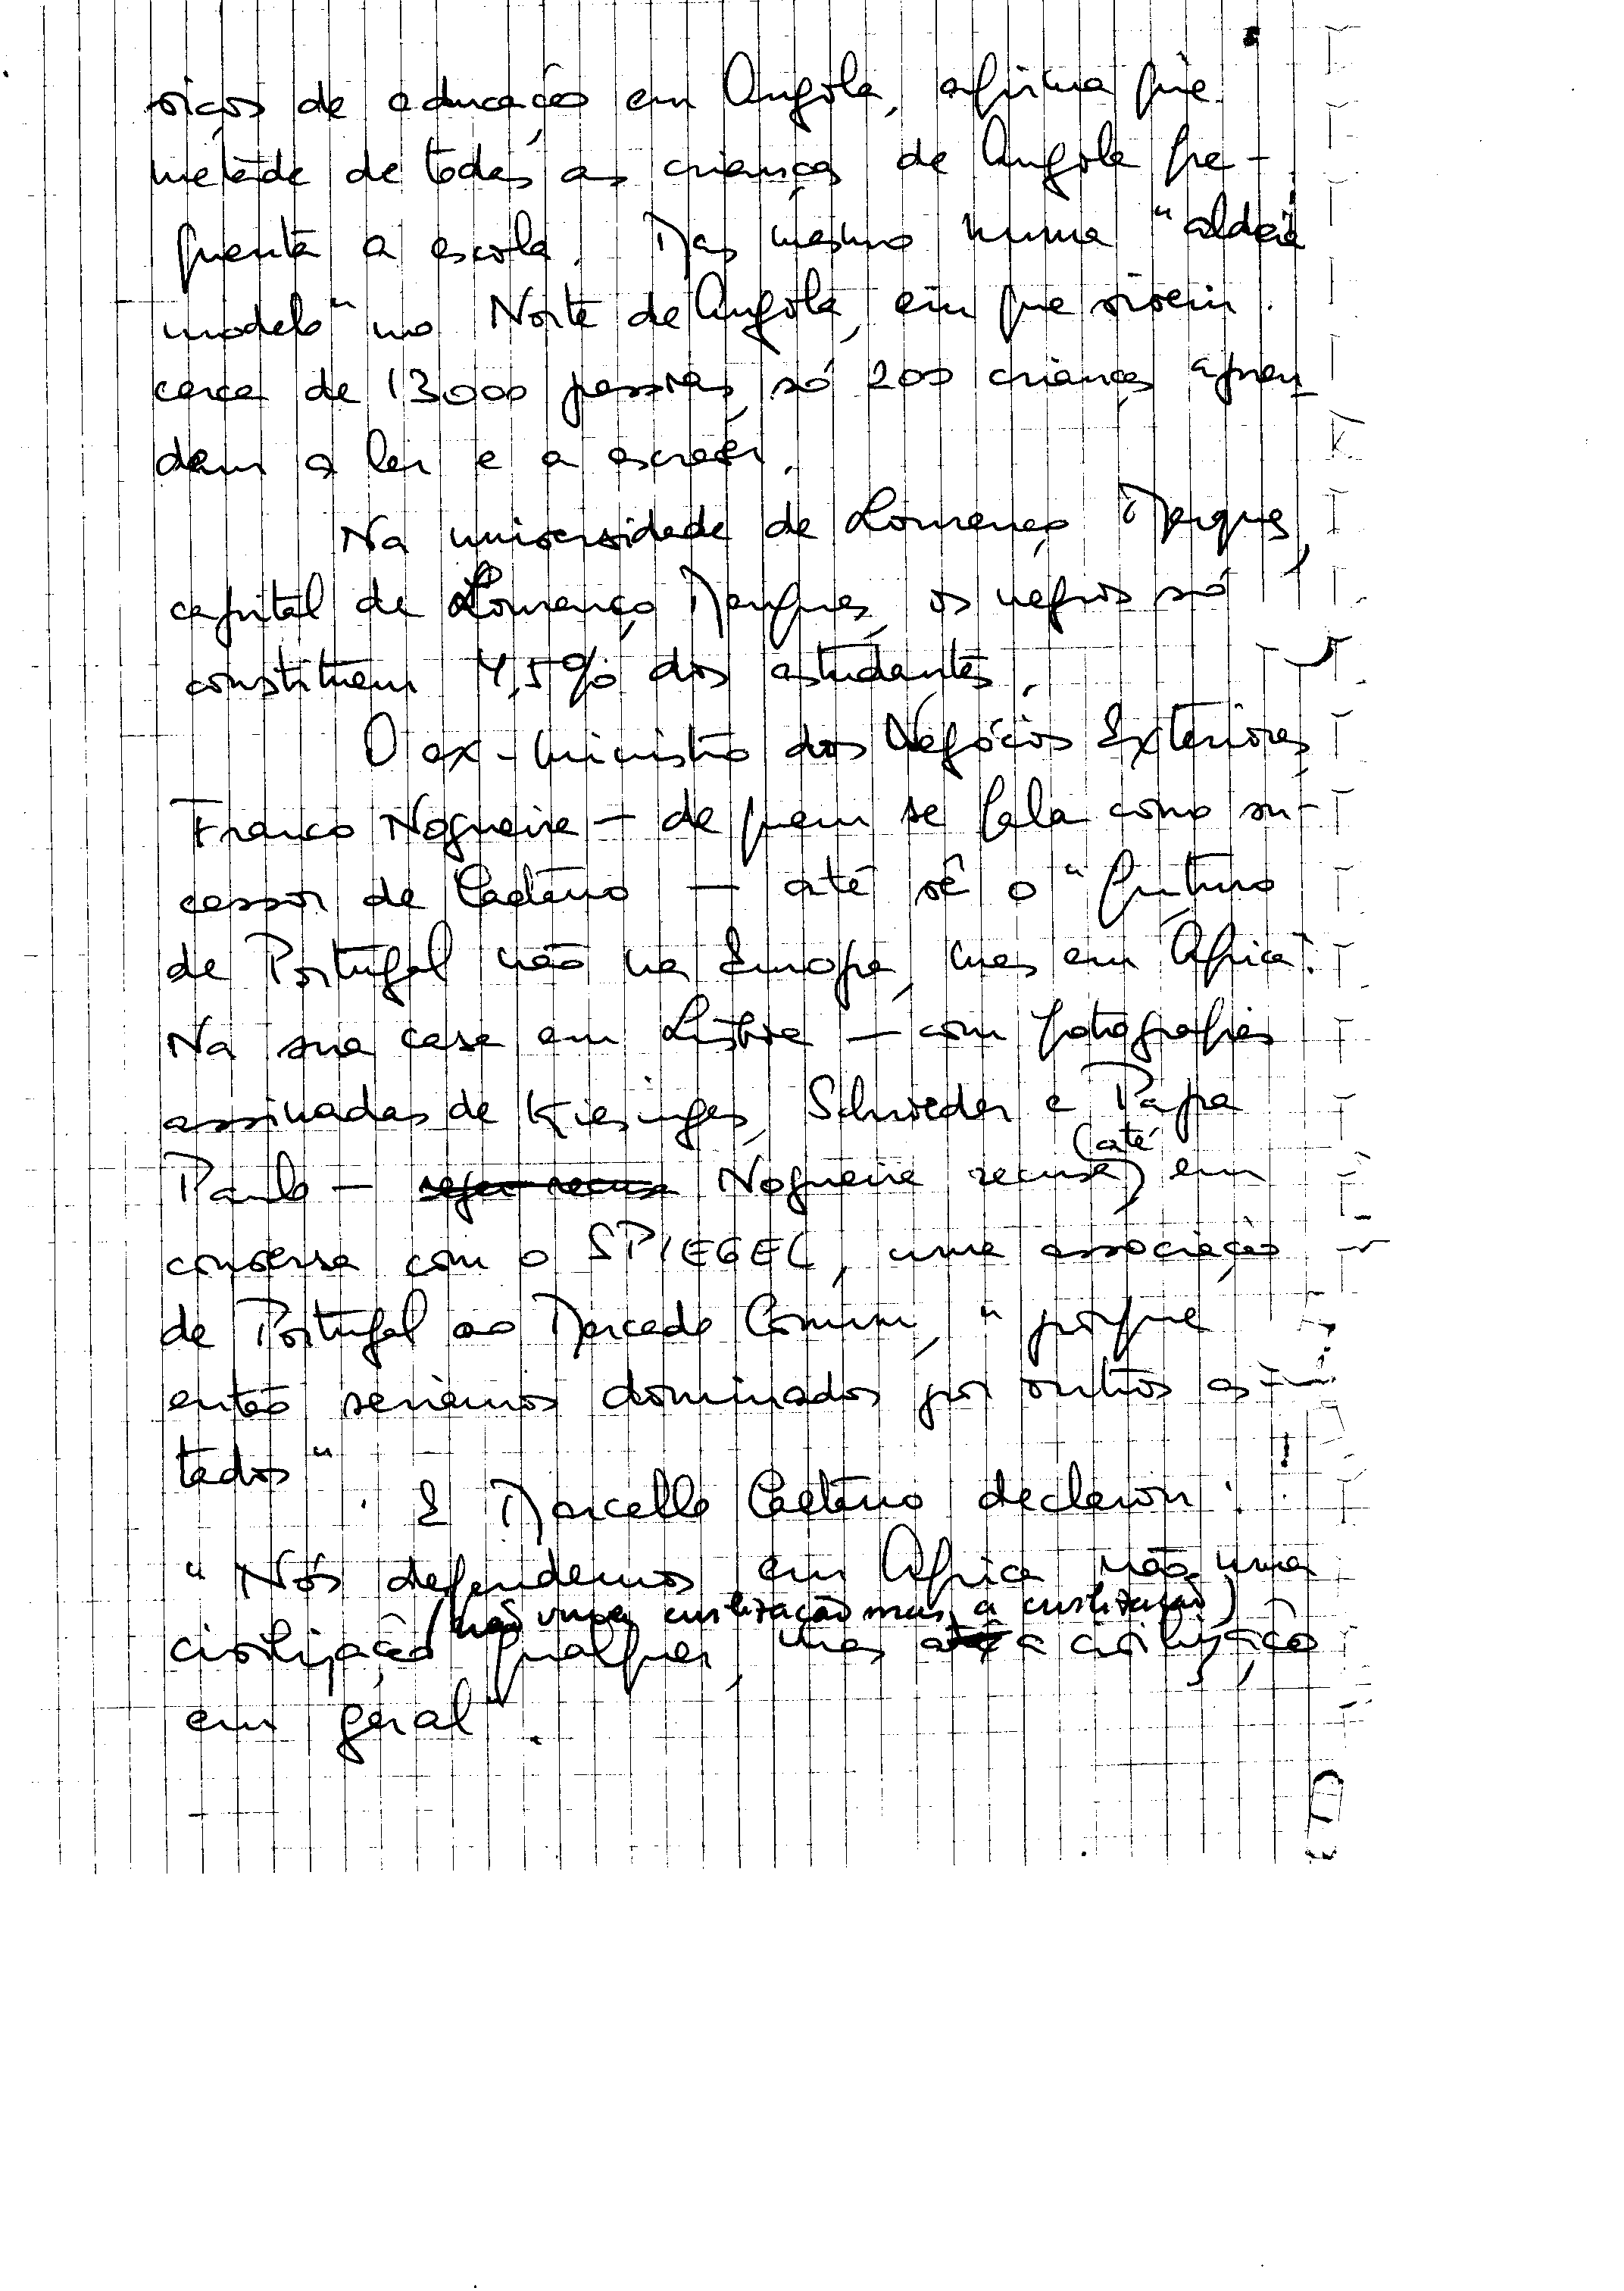 viços de educação em Angola, afirma que
metade de todas as crianças de Angola fre-
quenta a escola. Mas mesmo numa "aldeia
modelo" no Norte de Angola, em que vivem
cerca de 13000 pessoas, só 200 crianças apren-
dem a ler e a escrever.
Na universidade de Lourenço Marques,
capital de Lourenço Marques, os negros só
constituem 4,5% dos estudantes.
O ex-ministro dos Negócios Exteriores
Franco Nogueira — de quem se fala como su-
cessor de Caetano — até vê o "futuro
de Portugal não na Europa, mas em África".
Na sua casa em Lisboa — com fotografias
assinadas de Kiesinger, Schröeder e Papa
Paulo — Nogueira recusa (até), em
conversa com o SPIEGEL, uma associação
de Portugal ao Mercado Comum, "porque
então seríamos dominados por outros es-
tados".
E Marcello Caetano declarou:
"Nós defendemos em África não uma
(não uma civilização mas a civilização)
civilização qualquer, mas a civilização
em geral".